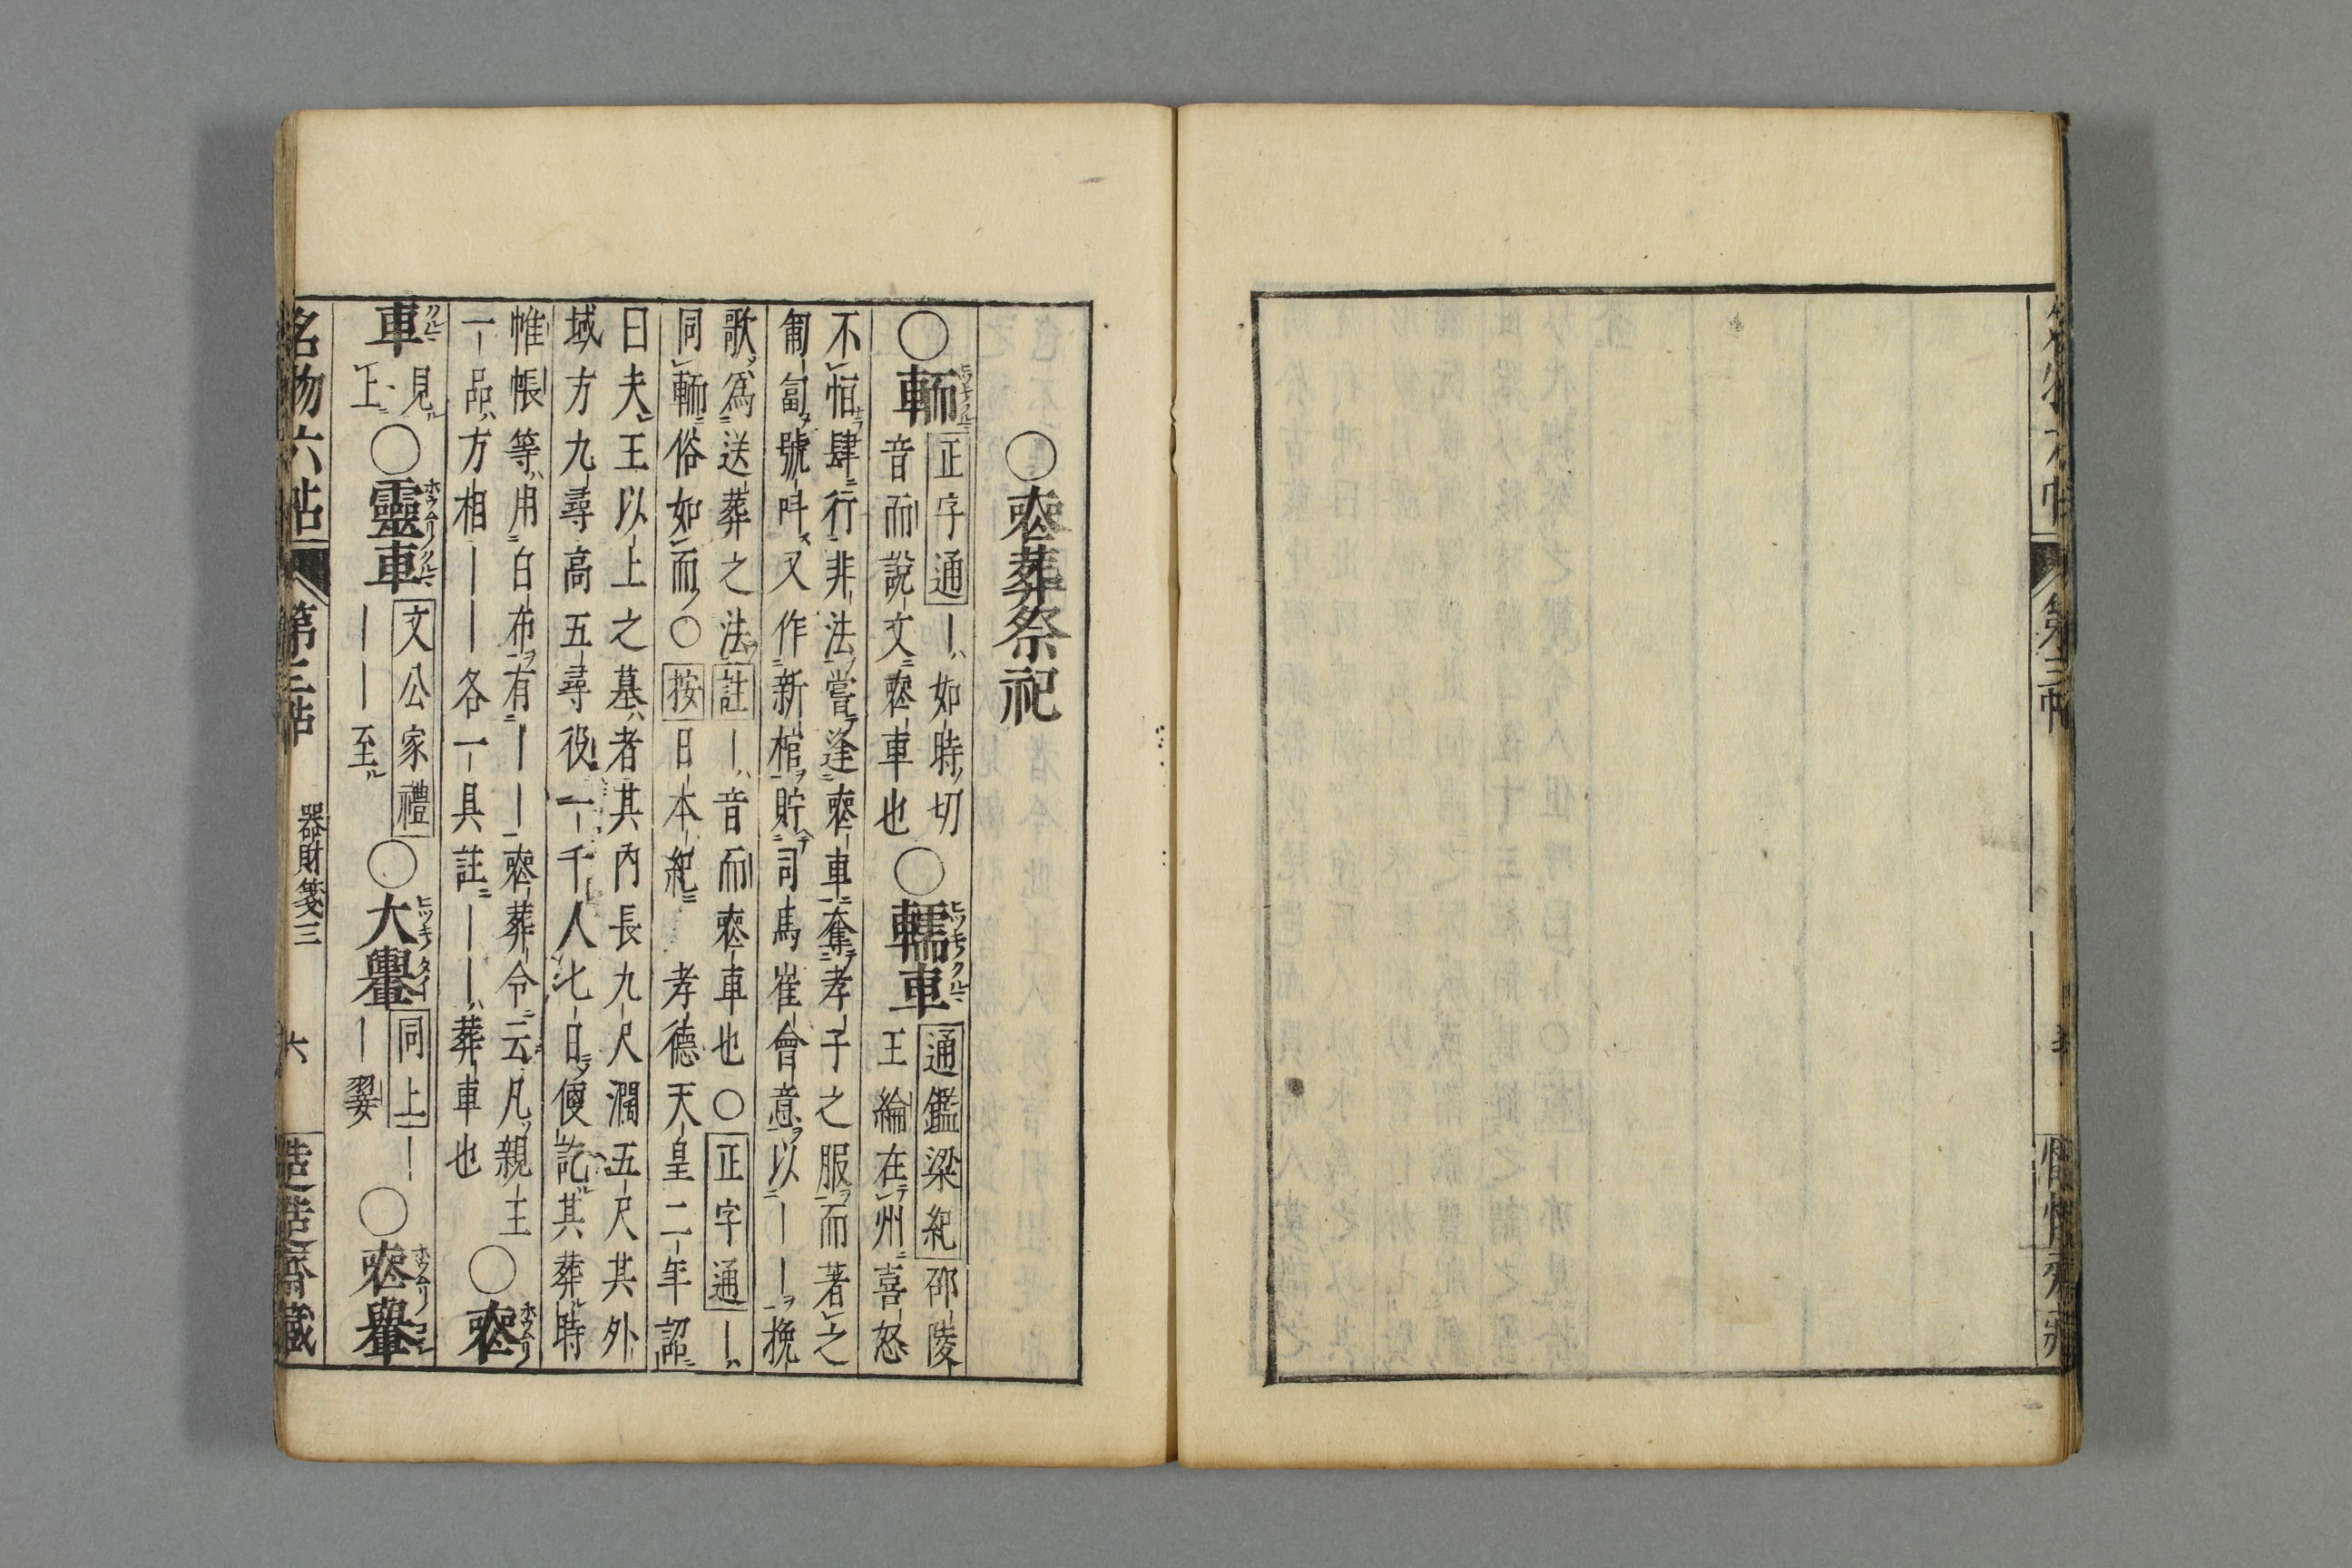 ○喪葬祭祀
○輀正字通｜如時切
音而說文喪車也○轜車通鑑梁紀邵陵
王綸在州喜怒
不恒肆行非法嘗逢喪車奪孝子之服而著之
匍匐號叫又作新棺貯司馬崔會意以｜｜挽
歌爲送葬之法註｜音而喪車也○正字通｜
同輀俗如而○按日本紀孝德天皇二年詔
曰夫王以上之墓者其內長九尺濶五尺其外
域方九尋高五尋役一千人七日使訖其葬時
帷帳等用白布有｜｜喪葬令云凡親王
一品方相｜｜各一具註｜｜葬車也○喪
車見上○靈車文公家禮
｜｜至○大轝同上｜
｜翣○喪轝
名物六帖 第三帖 器財箋三 六